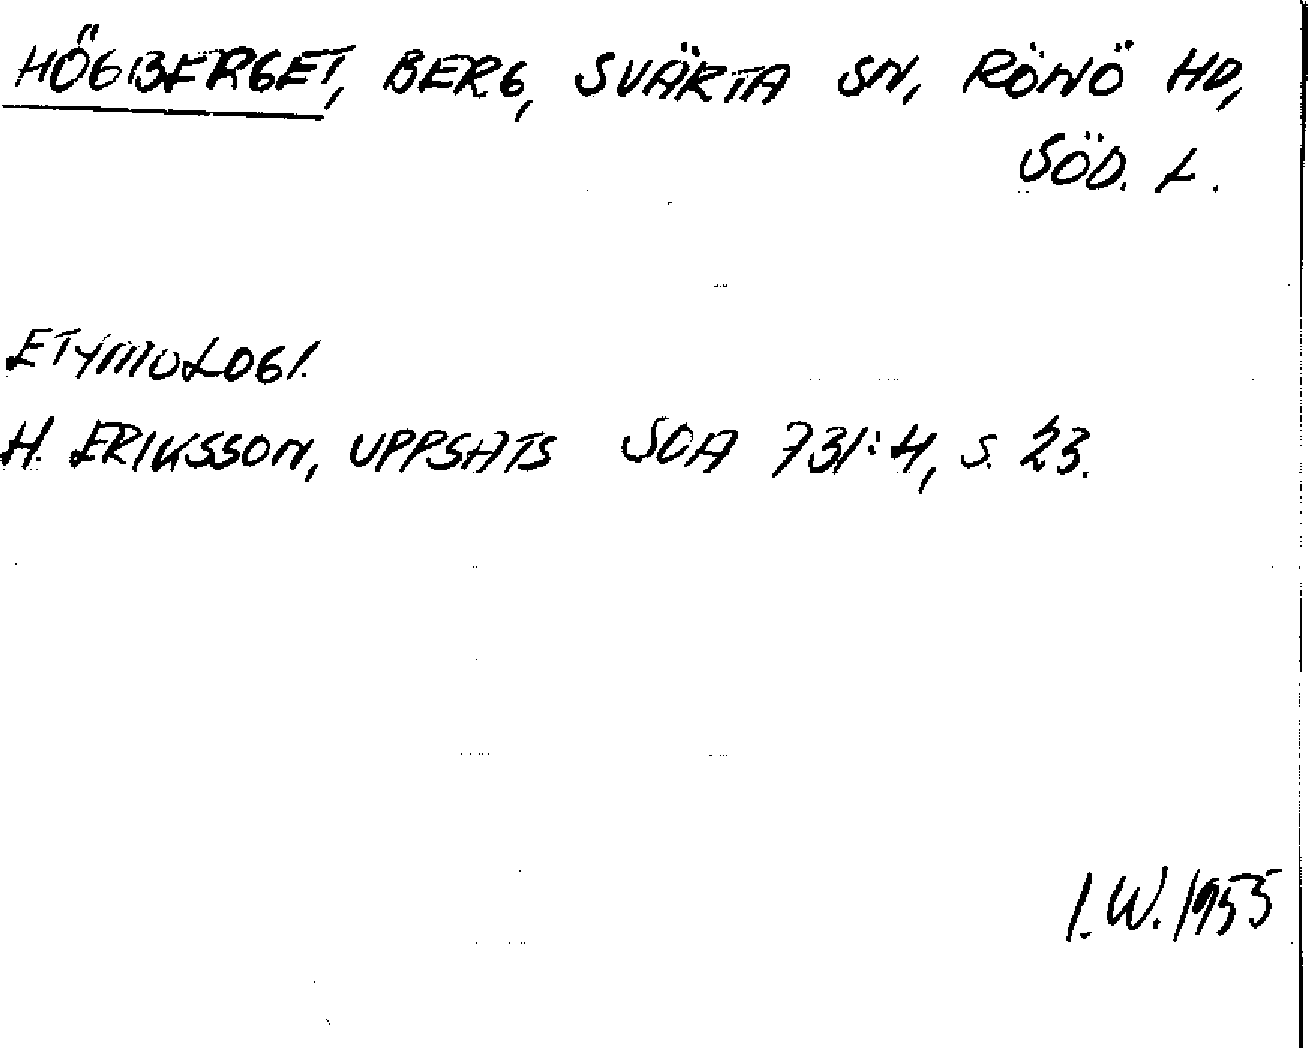 HÖGBERGET, BERG, SVÄRTA SN, RÖNÖ HD,
SÖD. L.
ETYMOLOGI.
H. ERIKSSON, UPPSATS SOA 731:4, S. 23.
I.W. 1955